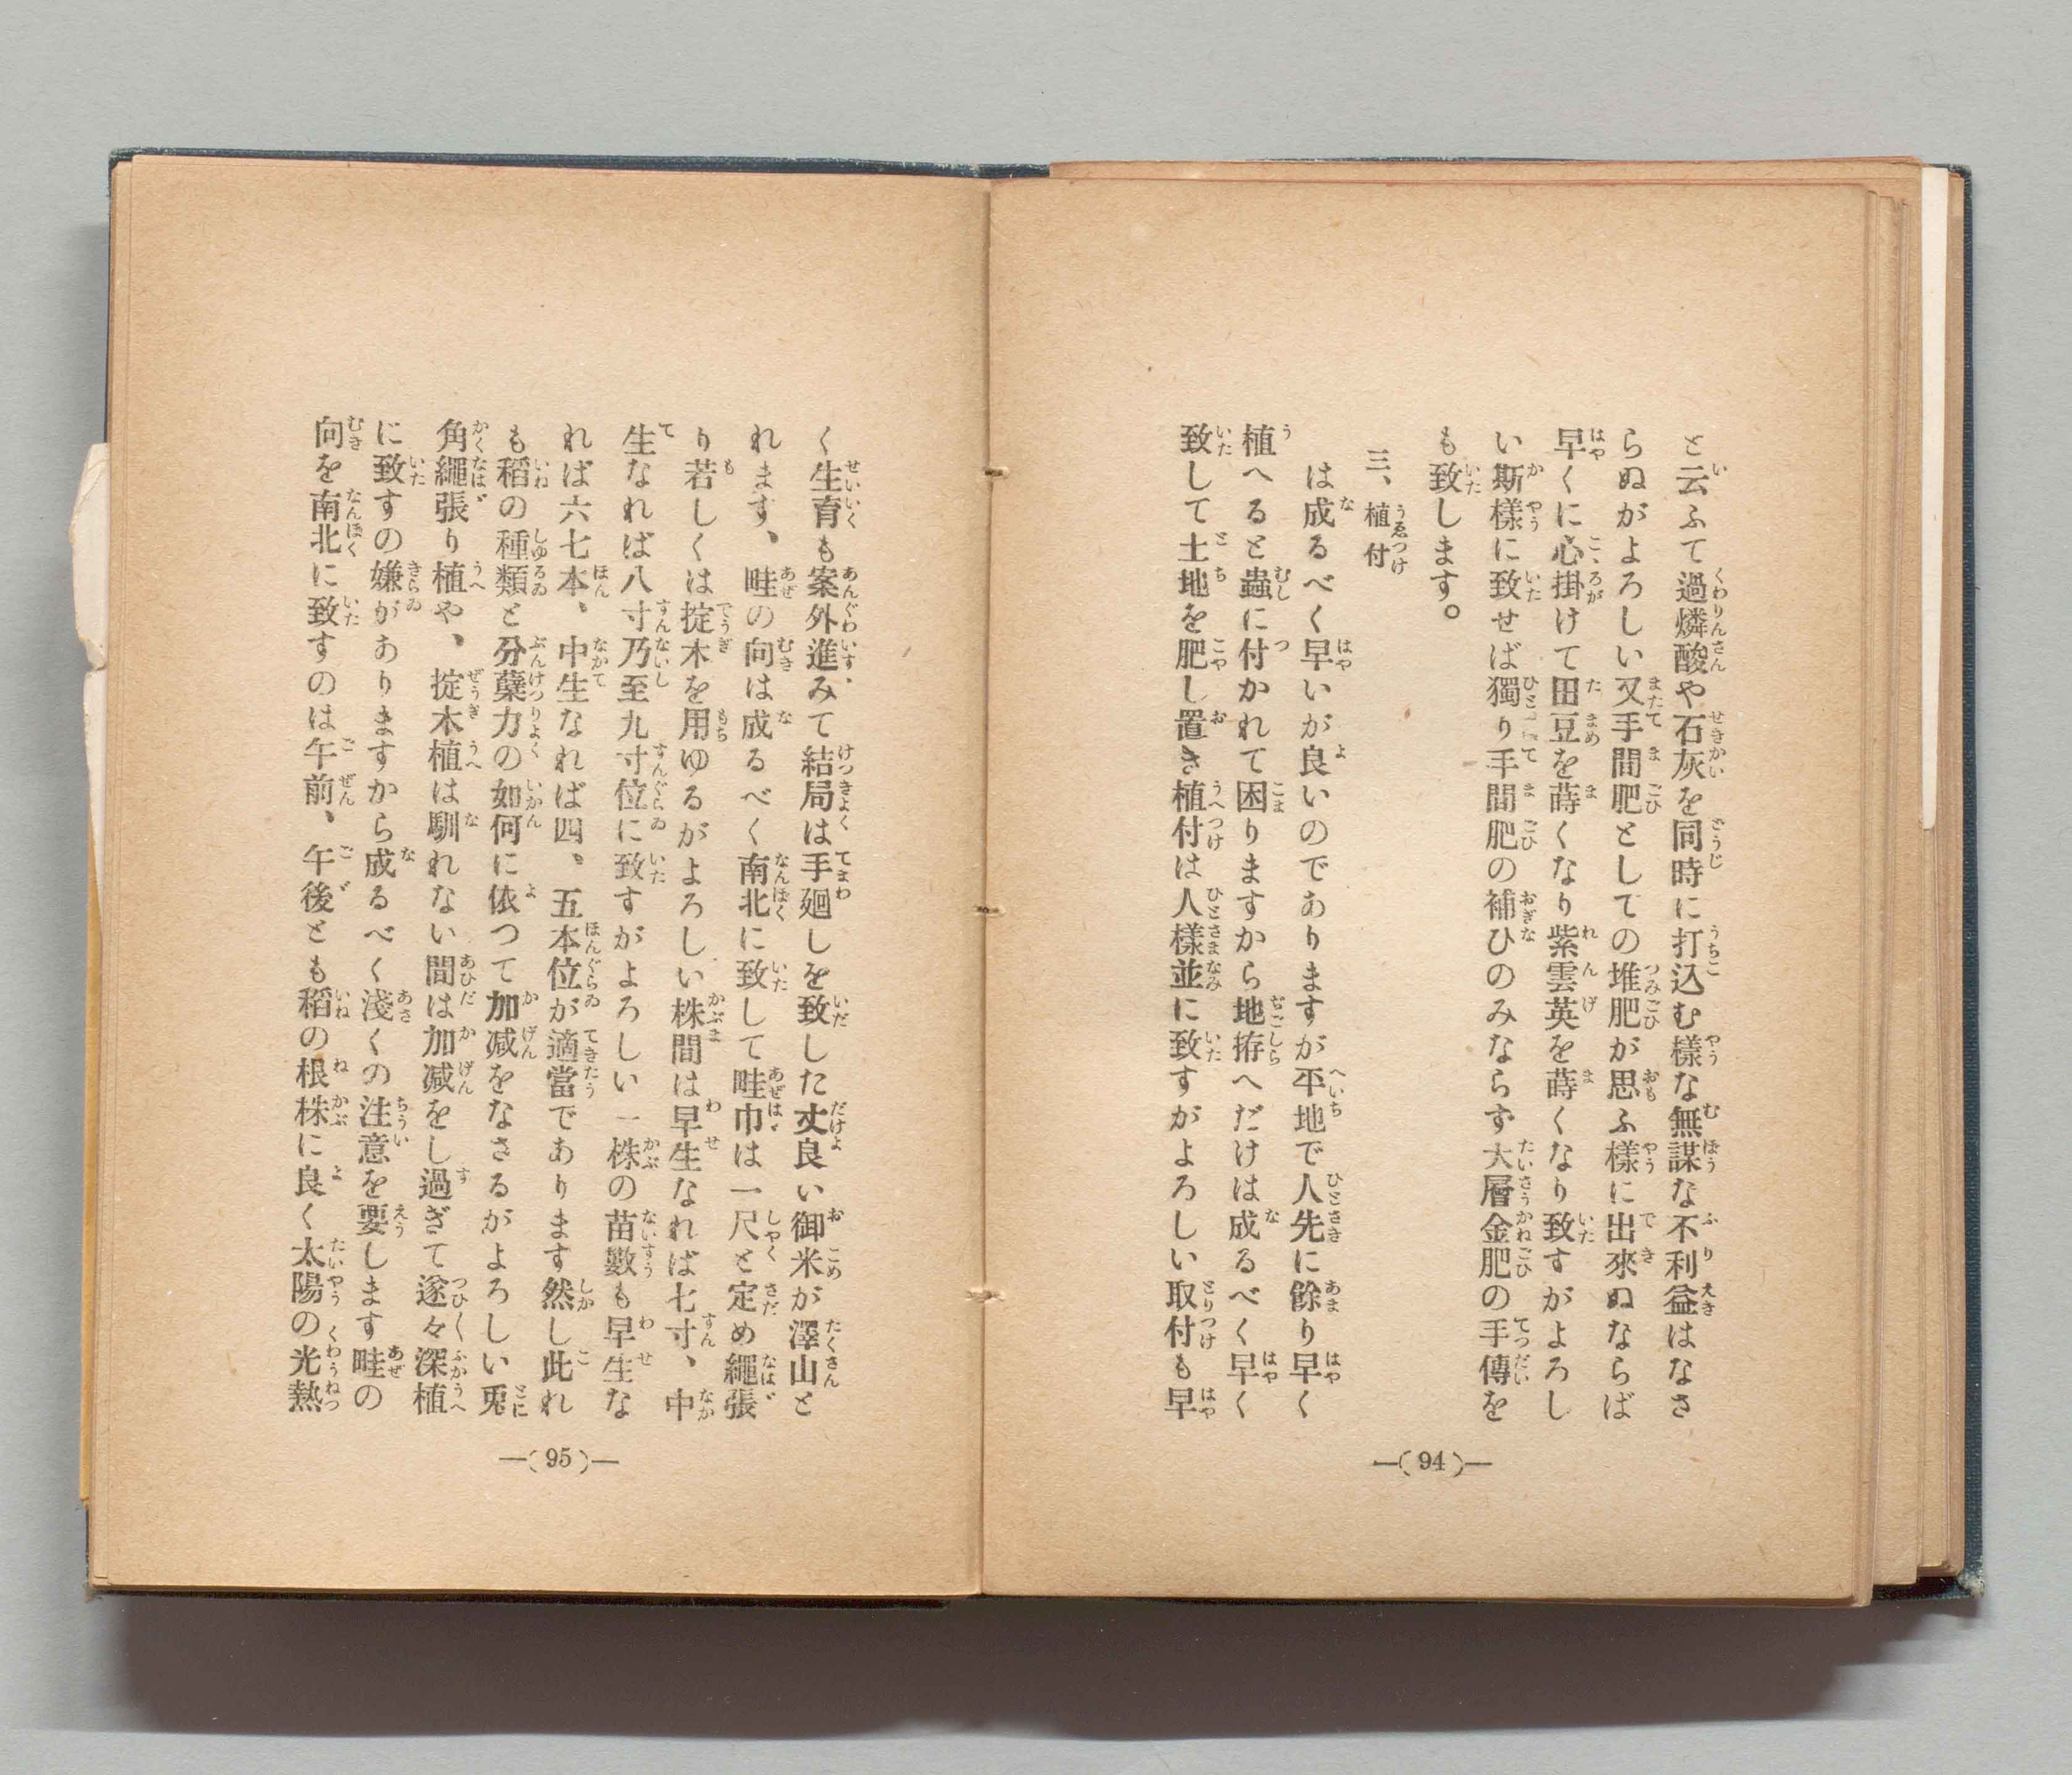 と云ふて過燐酸や石灰を同時に打込む樣な無謀な不利益はなさ
らぬがよろしい又手間肥としての堆肥が思ふ樣に出來ぬならば
早くに心掛けて田豆を蒔くなり紫雲英を蒔くなり致すがよろし
い斯樣に致せば獨り手間肥の補ひのみならず大層金肥の手傳を
も致します。
三、植付
は成るべく早いが良いのでありますが平地で人先に餘り早く
植へると蟲に付かれて困りますから地拵へだけは成るべく早く
致して土地を肥し置き植付は人樣並に致すがよろしい取付も早
―(94)―
く生育も案外進みて結局は手廻しを致した丈良い御米が澤山と
れます、畦の向は成るべく南北に致して畦巾は一尺と定め繩張
り若しくは掟木を用ゆるがよろしい株間は早生なれば七寸、中
生なれば八寸乃至九寸位に致すがよろしい一株の苗數も早生な
れば六七本、中生なれば四、五本位が適當であります然し此れ
も稻の種類と分蘖力の如何に依つて加減をなさるがよろしい兎
角繩張り植や、掟木植は馴れない間は加減をし過ぎて遂々深植
に致すの嫌がありますから成るべく淺くの注意を要します畦の
向を南北に致すのは午前、午後とも稻の根株に良く太陽の光熱
―(95)―